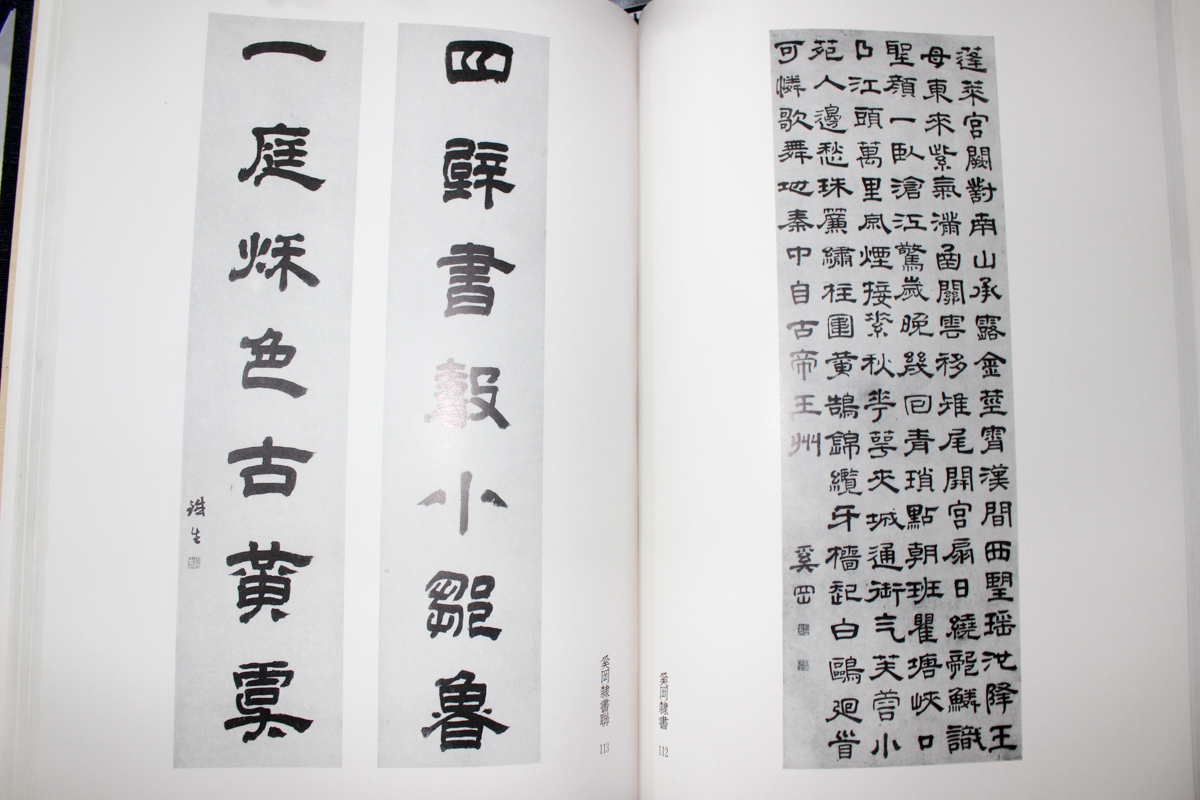 蓬萊宮闕對南山承露金莖霄漢間西望瑤池降王
母東來紫氣滿函關雲移雉尾開宮扇日繞龍鱗識
聖顏一臥滄江驚歲晚幾回青瑣點朝班瞿塘峽口
曲江頭萬里風煙接素秋花萼夾城通御气芙蓉小
苑入邊愁珠簾繡柱圍黃鵠錦纜牙檣起白鷗迴首
可憐歌舞地秦中自古帝王州
奚岡
奚岡隸書 112
四壁書聲小鄒魯
一庭秌色古黃虞
鐵生
奚岡隸書聯 113